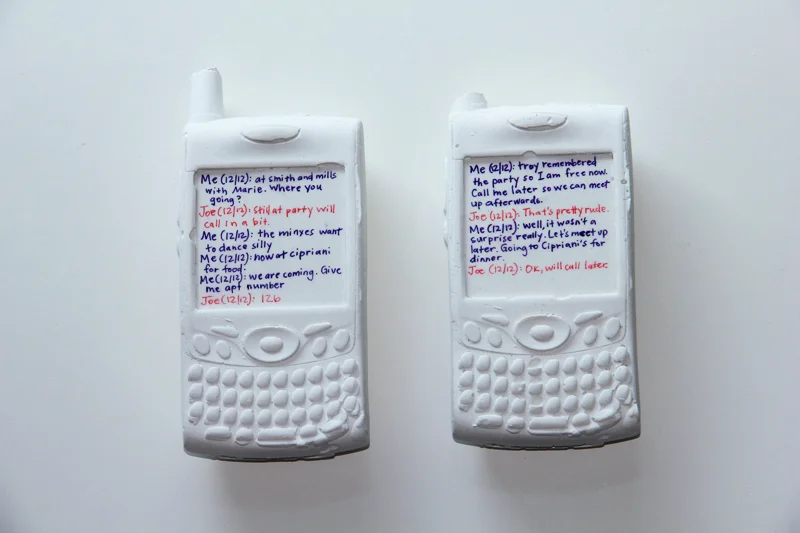 Me (12/12): at smith and mills
with Marie. Where you
going?
Joe (12/12): Still at party will
call in a bit.
Me (12/12): the minxes want
to dance silly
Me (12/12): now at cipriani
for food.
Me (12/12): we are coming. Give
me apt number
Joe (12/12): 126
Me (12/12): troy remembered
the party so I am free now.
Call me later so we can meet
up afterwards.
Joe (12/12): That's pretty rude.
Me (12/12): Well, it wasn't a
surprise really. Let's meet up
later. Going to Cipriani's for
dinner.
Joe (12/12): OK, will call later.